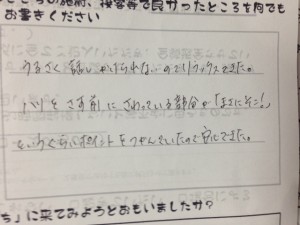 の施術、接客等で良かったところを何でも
お書きください
うるさく話しかけられないのでリラックスできた。
ハリをさす前にさわっている部分が「まさにそこ!」
というぐらいポイントをつかんでいたので安心できた。
ち」に来てみようとおもいましたか?